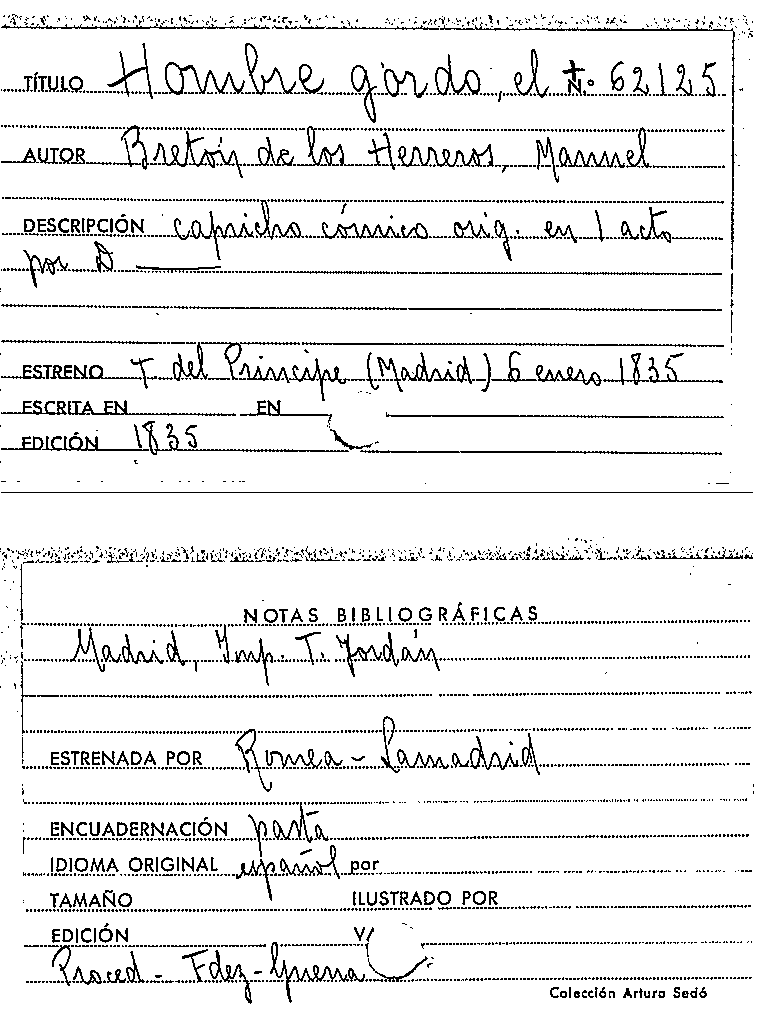 TÍTULO Hombre gordo, el N.º 62125
AUTOR Bretón de los Herreros, Manuel
DESCRIPCIÓN capricho cómico orig. en 1 acto
por D
ESTRENO T. del Príncipe (Madrid) 6 enero 1835
ESCRITA EN EN
EDICIÓN 1835
NOTAS BIBLIOGRÁFICAS
Madrid, Imp. T. Jordán
ESTRENADA POR Romea - Lamadrid
ENCUADERNACIÓN pasta
IDIOMA ORIGINAL español por
TAMAÑO ILUSTRADO POR
EDICIÓN V/
Proced - Fdez-Guerra
Colección Arturo Sedó